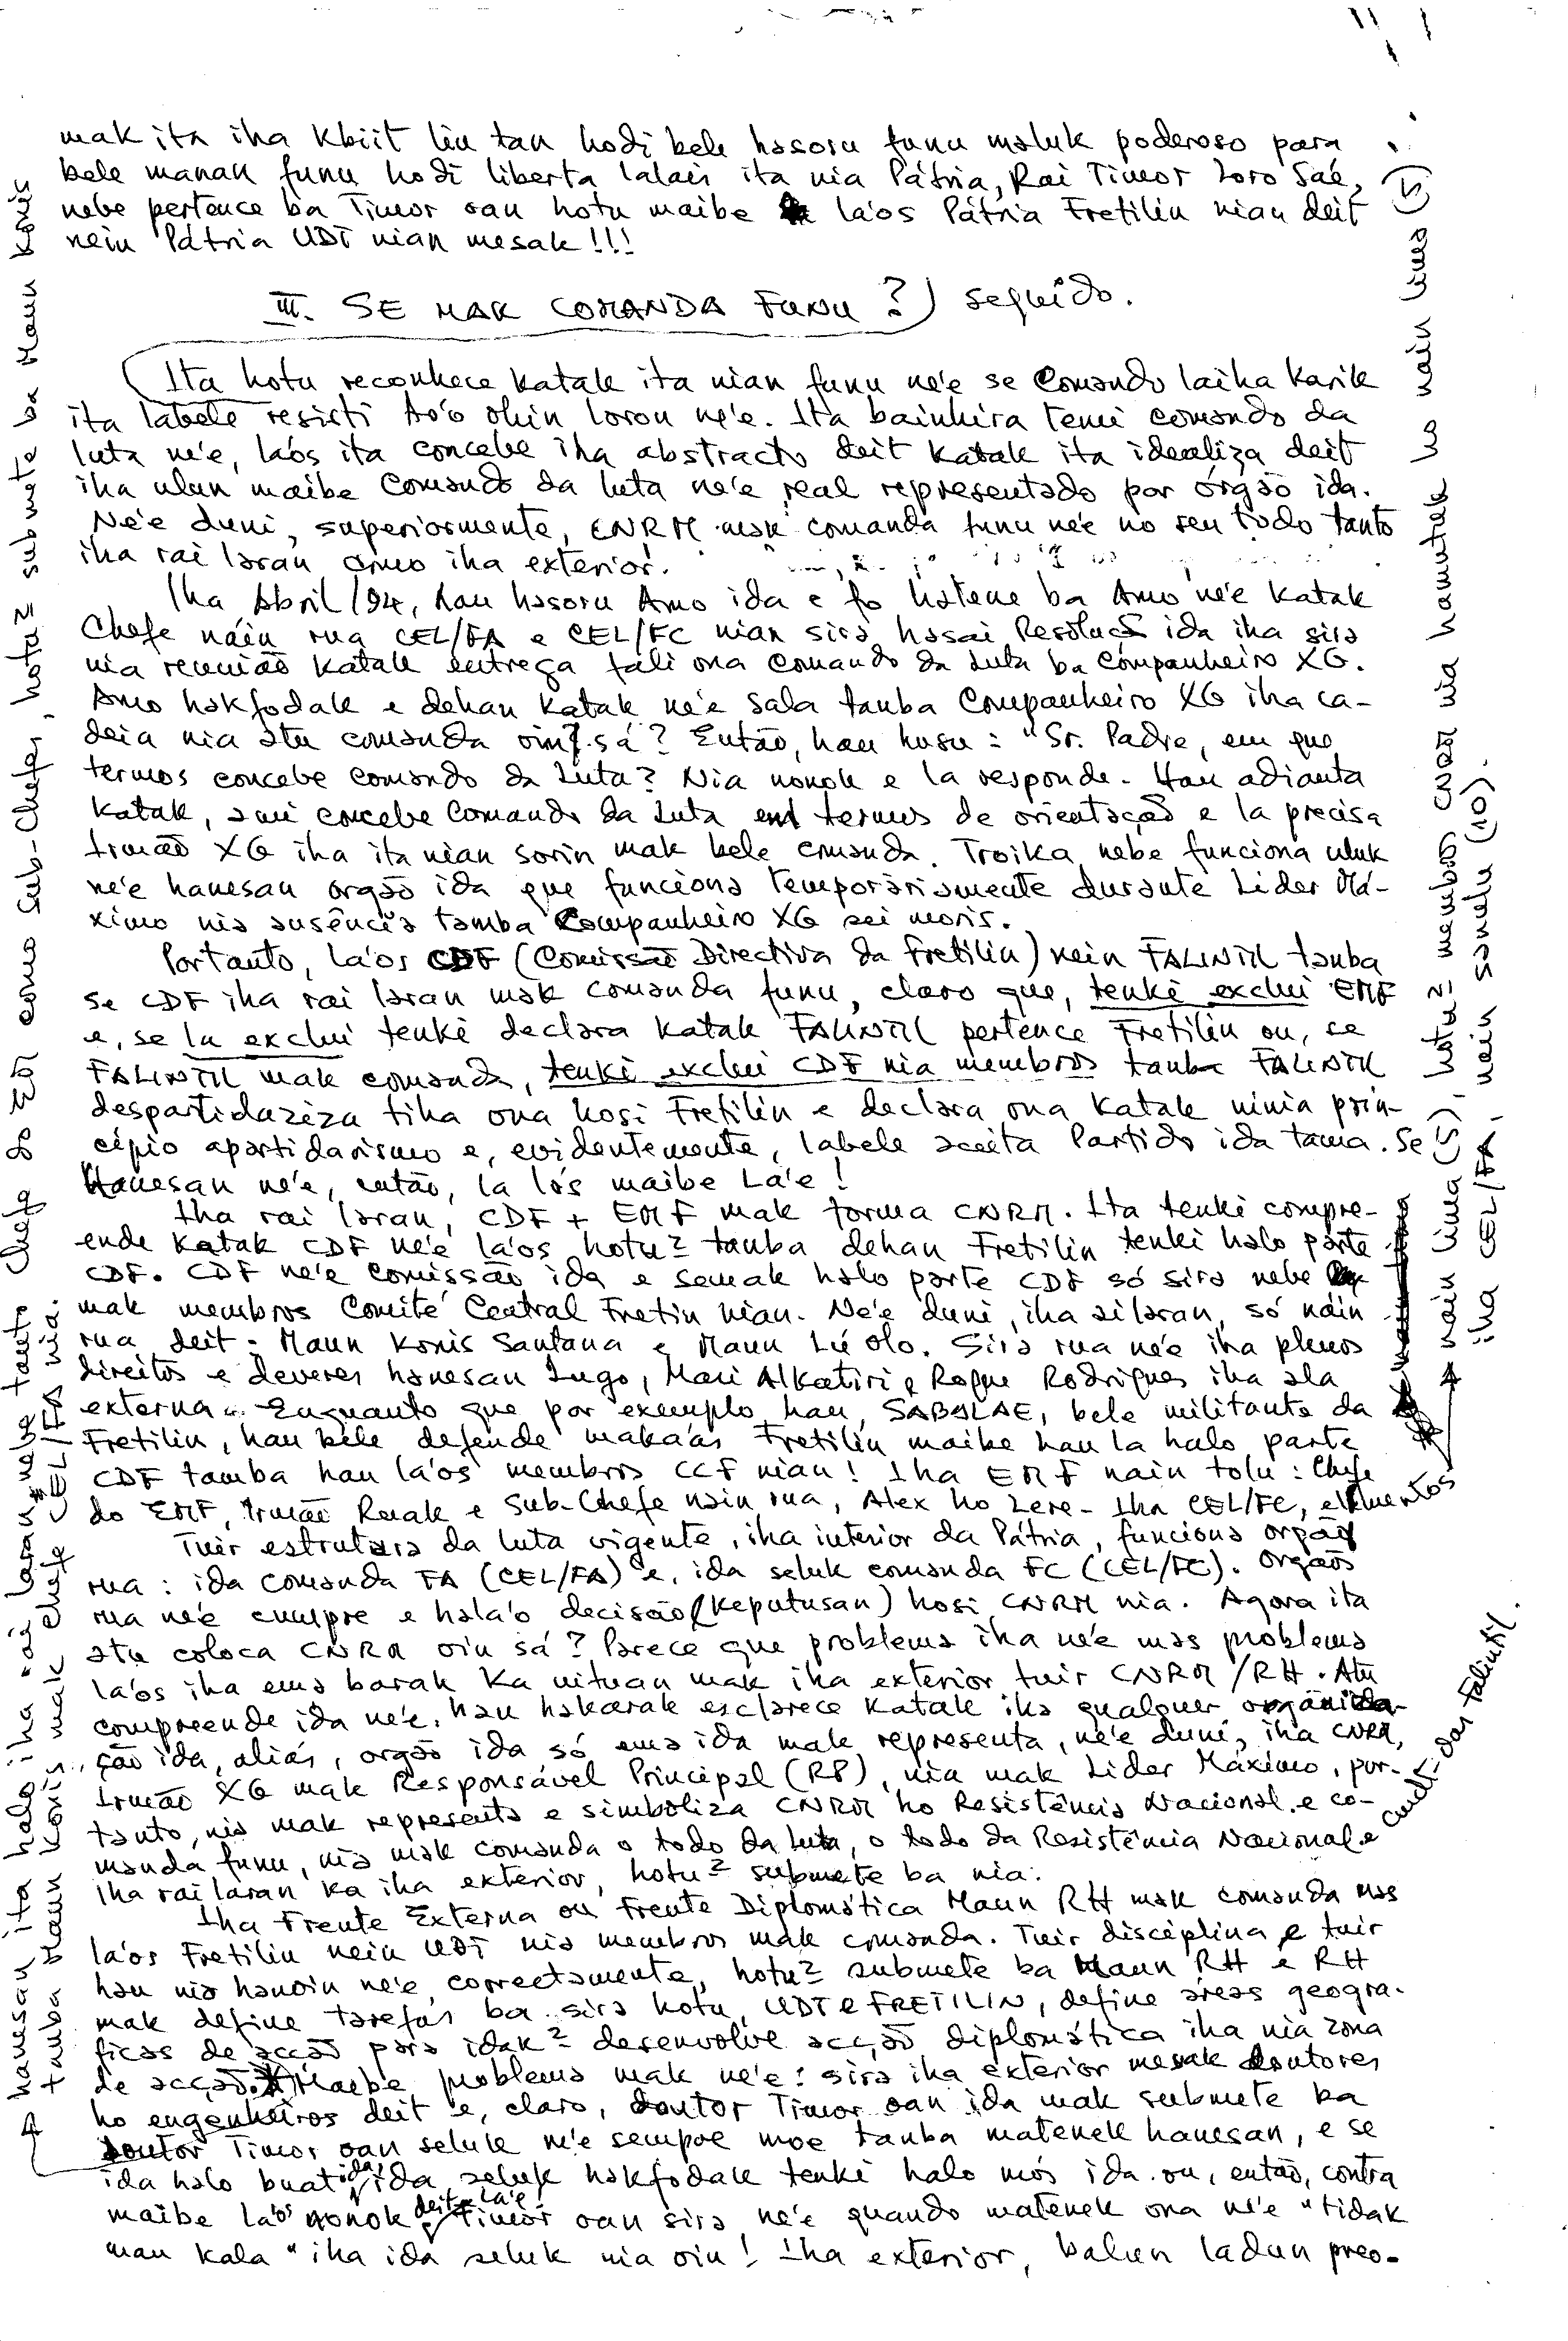 mak ita iha kbiit liu tan hodi bele hasoru funu maluk poderoso para
bele manan funu hodi liberta lalais ita nia Pátria, Rai Timor Loro Sa'e,
nebe pertence ba Timor oan hotu maibe la'os Pátria Fretilin nian deit
nein Pátria UDT nian mesak!!!
III. SE MAK COMANDA FUNU?) seguido.
Ita hotu reconhece katak ita nian funu ne'e se Comando laiha karik
ita labele resisti to'o ohin loron ne'e. Ita bainhira temi comando da
luta ne'e, la'os ita concebe iha abstracto deit katak ita idealiza deit
iha ulun maibe Comando da luta ne'e real representado por órgão ida.
Ne'e duni, superiormente, CNRM mak comanda funu ne'e no seu todo tanto
iha rai laran como iha exterior.
Iha Abril/94, hau hasoru Amo ida e fo hatene ba Amo ne'e katak
Chefe náin rua CEL/FA e CEL/FC nian sira hasai Resolução ida iha sira
nia reunião katak entrega fali ona Comando da Luta ba Companheiro XG.
Amo hakfodak e dehan katak ne'e sala tanba Companheiro XG iha ca-
deia nia atu comanda oin sá? Então, hau husu: "Sr. Padre, em que
termos concebe comando da Luta? Nia nonok e la responde. Hau adianta
katak, ami concebe Comando da Luta em termos de orientação e la precisa
Irmão XG iha ita nian sorin mak bele comanda. Troika nebe funciona uluk
ne'e hanesan orgão ida que funciona temporàriamente durante Lider Má-
ximo nia ausência tamba Companheiro XG sei moris.
Portanto, la'os CDF (Comissão Directiva da Fretilin) nein FALINTIL tanba
se CDF iha rai laran mak comanda funu, claro que, tenki exclui EMF
e, se la exclui tenki declara katak FALINTIL pertence Fretilin ou, se
FALINTIL mak comanda, tenki exclui CDF nia membros tanba FALINTIL
despartidariza tiha ona hosi Fretilin e declara ona katak ninia prin-
cípio apartidarismo e, evidentemente, labele aceita Partido ida tama. Se
Hanesan ne'e, então, la lós maibe La'e!
Iha rai laran, CDF + EMF mak forma CNRM. Ita tenki compre-
ende katak CDF ne'e la'os hotu² tanba dehan Fretilin tenki halo parte
CDF. CDF ne'e Comissão ida e semak halo parte CDF só sira nebe
mak membros Comité Central Fretin nian. Ne'e duni, iha ai laran, só náin
rua deit: Maun Konis Santana e Maun Lú Olo. Sira rua ne'e iha plenos
direitos e deveres hanesan Lugo, Mari Alkatiri e Roque Rodrigues iha ala
externa. Enquanto que por exemplo hau, SABALAE, bele militante da
Fretilin, hau bele defende maka'as Fretilin maibe hau la halo parte
CDF tamba hau la'os membros CCF nian! Iha EMF nain tolu: Chefe
do EMF, Irmão Ruak e Sub-Chefe nain rua, Alex ho Lere. Iha CEL/FC, elementos
nain lima (5), hotu² membos CNRM nia hamutuk ho nain lima (5)
iha CEL/FA, nain sanulu (10).
Tuir estrutura da luta vigente, iha interior da Pátria, funciona orgão
rua: ida comanda FA (CEL/FA) e, ida seluk comanda FC (CEL/FC). Orgãos
rua ne'e cumpre e hala'o decisão (keputusan) hosi CNRM nia. Agora ita
atu coloca CNRM oin sá? Parece que problema iha ne'e mas problema
la'os iha ema barak ka uituan mak iha exterior tuir CNRM/RH. Atu
compreende ida ne'e, hau hakarak esclarece katak iha qualquer organiza-
ção ida, aliás, orgão ida só ema ida mak representa, ne'e duni, iha CNRM,
Irmão XG mak Responsável Principal (RP), nia mak Lider Máximo, por-
tanto, nia mak representa e simboliza CNRM ho Resistência Nacional e co-
manda funu, nia mak comanda o todo da luta, o todo da Resistência Nacional e
cmdt. das Falintil.
iha rai laran ka iha exterior, hotu² submete ba nia.
Iha Frente Externa ou Frente Diplomática Maun RH mak comanda mas
la'os Fretilin nein UDT nia membros mak comanda. Tuir disciplina e tuir
hau nia hanoin ne'e, correctamente, hotu² submete ba Maun RH e RH
mak define tarefas ba sira hotu, UDT e FRETILIN, define áreas geográ-
ficas de acção para idak² desenvolve acção diplomática iha nia zona
de acção. Maibe problema mak ne'e: sira iha exterior mesak doutores
ho engenheiros deit e, claro, doutor Timor oan ida mak submete ba
doutor Timor oan seluk ne'e sempre moe tanba matenek hanesan, e se
ida halo buat ida, ida seluk hakfodak tenki halo mós ida ou, então, contra
maibe la'os nonok deit. La'e Timor oan sira ne'e quando matenek ona ne'e "tidak
mau kala" iha ida seluk nia oin! Iha exterior, balun ladun preo-
hanesan ita halo iha rai laran nebe tanto Chefe do EM como Sub-Chefe, hotu² submete ba Maun Konis
tanba Maun Konis mak chefe CEL/FA nia.